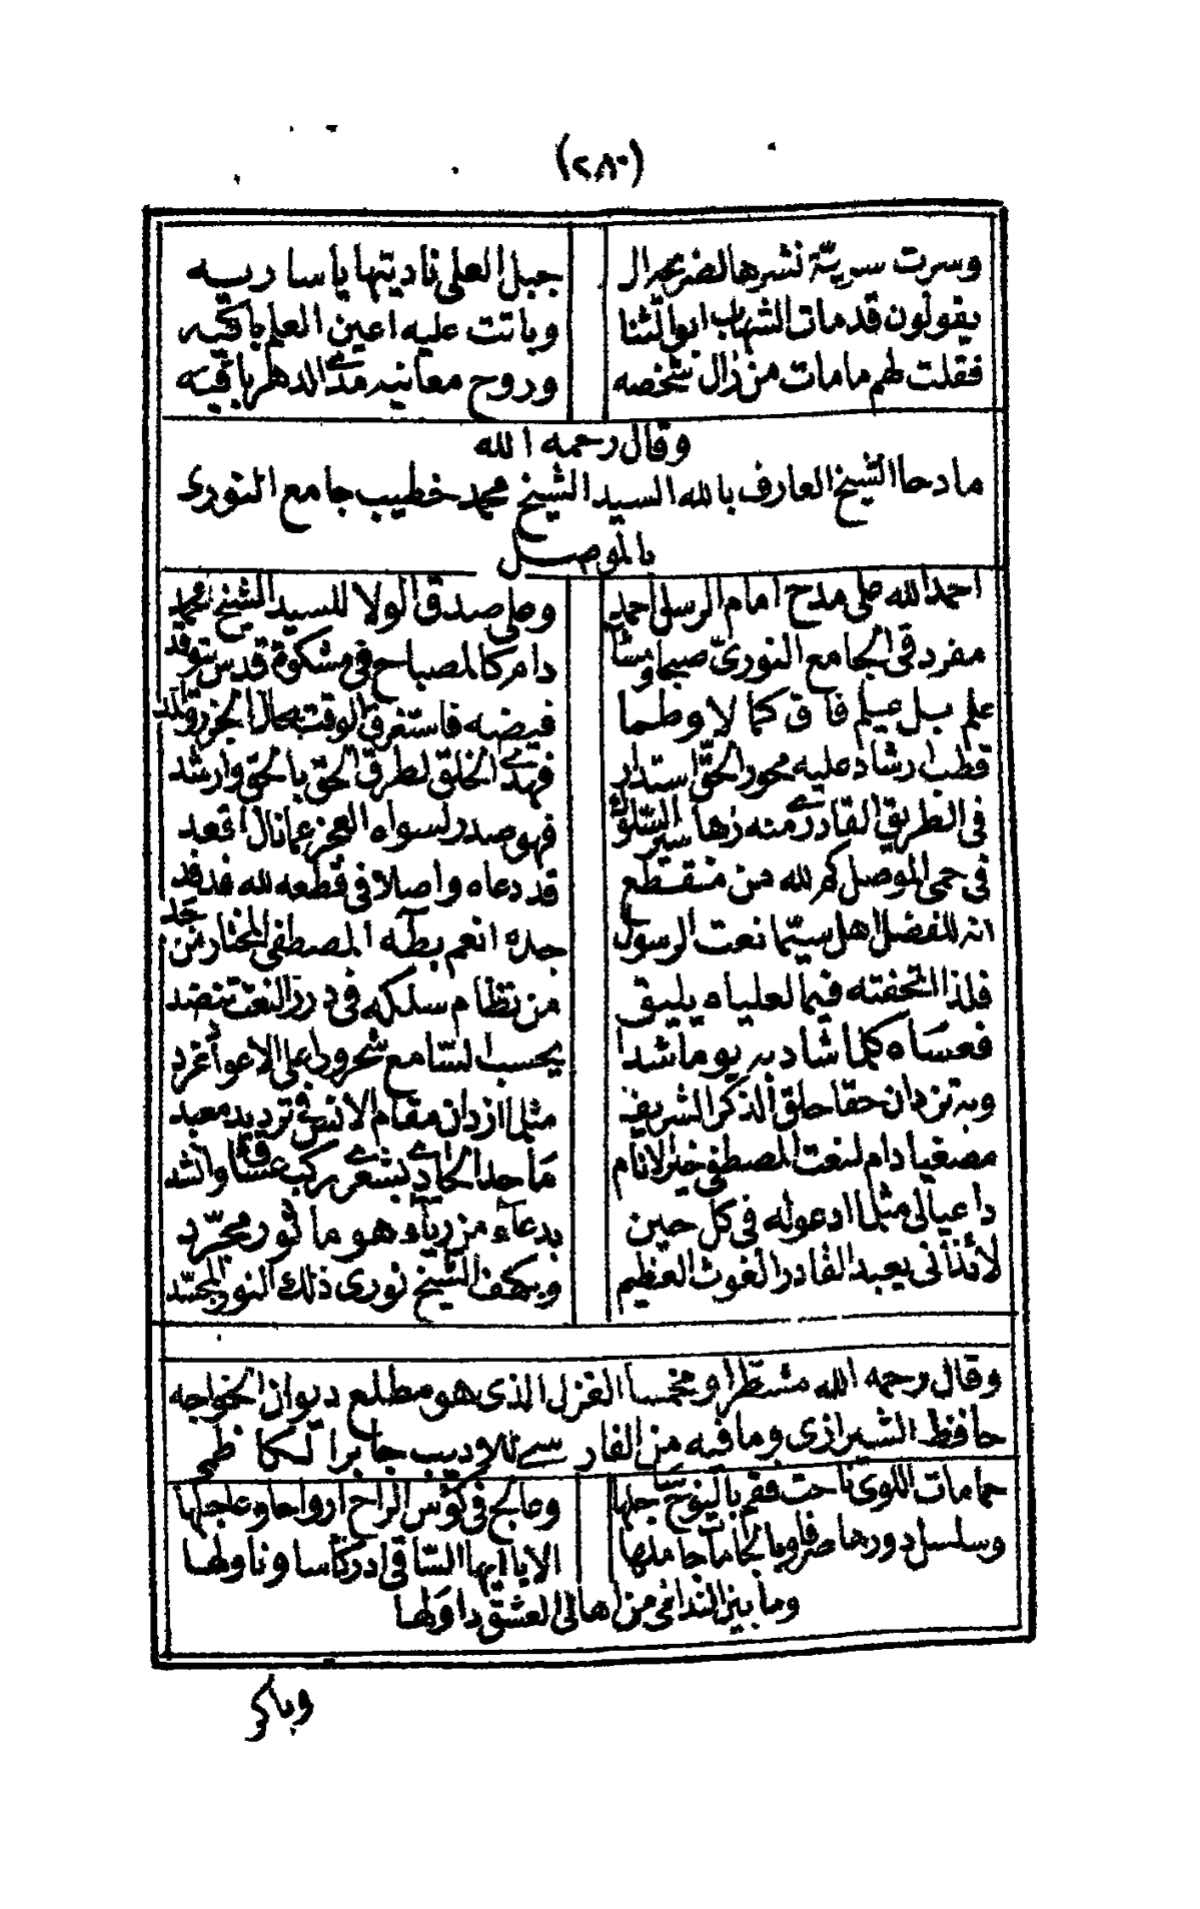 (٢٨٠)
وسرت سرية نشرها لضريح ال جبل العلى ناديتها يا ساريه
يقولون قد مات الشهاب ابو الثنا وباتت عليه اعين العلم باكيه
فقلت لهم ما مات من زال شخصه وروح معانيه مدى الدهر باقيه
وقال رحمه الله
مادحا الشيخ العارف بالله السيد الشيخ محمد خطيب جامع النورى
بالموصل
احمد الله على مدح امام الرسل احمد وعلى صدق الولا للسيد الشيخ محمد
مفرد فى الجامع النورىّ صبحا ومسا دام كالمصباح فى مشكوة قدس يتوقد
علم بل عيلم فاق كمالا وطما فيضه فاستغرق الوقت بحال الجزر والمد
قطب ارشاد عليه محور الحقّ استدار فهدى الخلق لطرق الحق بالحق وارشد
فى الطريق القادرى منه زها سر السلوك فهو صدر لسواه العجز عما نال اقعد
فى حمى الموصل كم لله من منقطع قد دعاه واصلا فى قطعه لله فدفد
انه للفضل اهل سيّما نعت الرسول جده انعم بطه المصطفى المختار من جد
فلذا اتحفته فيما لعلياه يليق من نظام سلكه فى درر النعت تنضد
فعساه كلما شاد به يوما شدا يحسب السّامع شحرورا على الاعواد غرد
وبه تزدان حقا حلق الذكر الشريف مثلما ازدان مقام الانس فى ترديد معبد
مصغيا دام لنعت المصطفى خير الانام ما حدا الحادى بشعرى ركب عشاق وانشد
داعيا لى مثلما ادعو له فى كل حين بدعآء من ريآء هو ما ثور مجرّد
لائذا انى بعبد القادر الغوث العظيم وبكهف الشيخ نورى ذلك النور المجسّد
وقال رحمه الله مشطرا ومخمسا الغزل الذى هو مطلع ديوان الخواجه
حافظ الشيرازى وما فيه من الفارسى للاديب جابر الكاظمى
حمامات اللوى ناحت فقم بالنوح ساجلها وعالج فى كؤس الراح ارواحا وعاجلها
وسلسل دورها صرفا وبالجامات جاملها الا يا ايها السّاقى ادر كأسا وناولها
وما بين الندامى من اهالى العشق داولها
وباكر